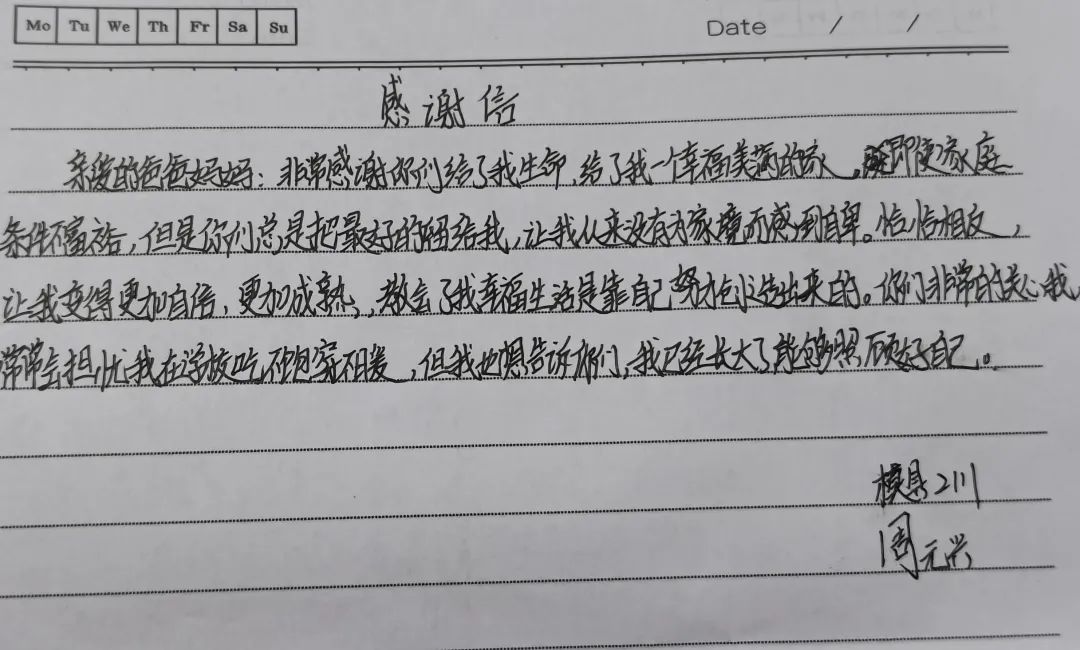 Mo Tu We Th Fr Sa Su
Date / /
感谢信
亲爱的爸爸妈妈：非常感谢你们给了我生命，给了我一个幸福美满的家，即使家庭
条件不富裕，但是你们总是把最好的留给我，让我从来没有为家境而感到自卑。恰恰相反，
让我变得更加自信，更加成熟，教会了我幸福生活是靠自己努力创造出来的。你们非常的关心我，
常常会担忧我在学校吃不饱穿不暖，但我也想告诉你们，我已经长大了能够照顾好自己。
模具2111
周元兴